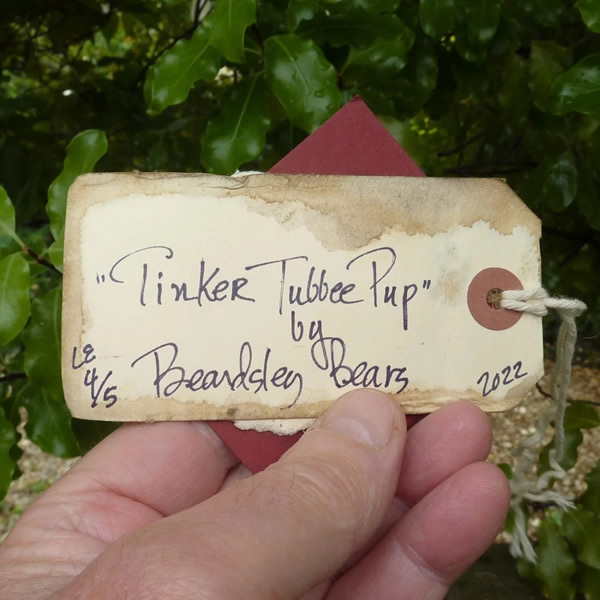 "Tinker Tubbee Pup"
by
Beardsley Bears
LE
4/5
2022